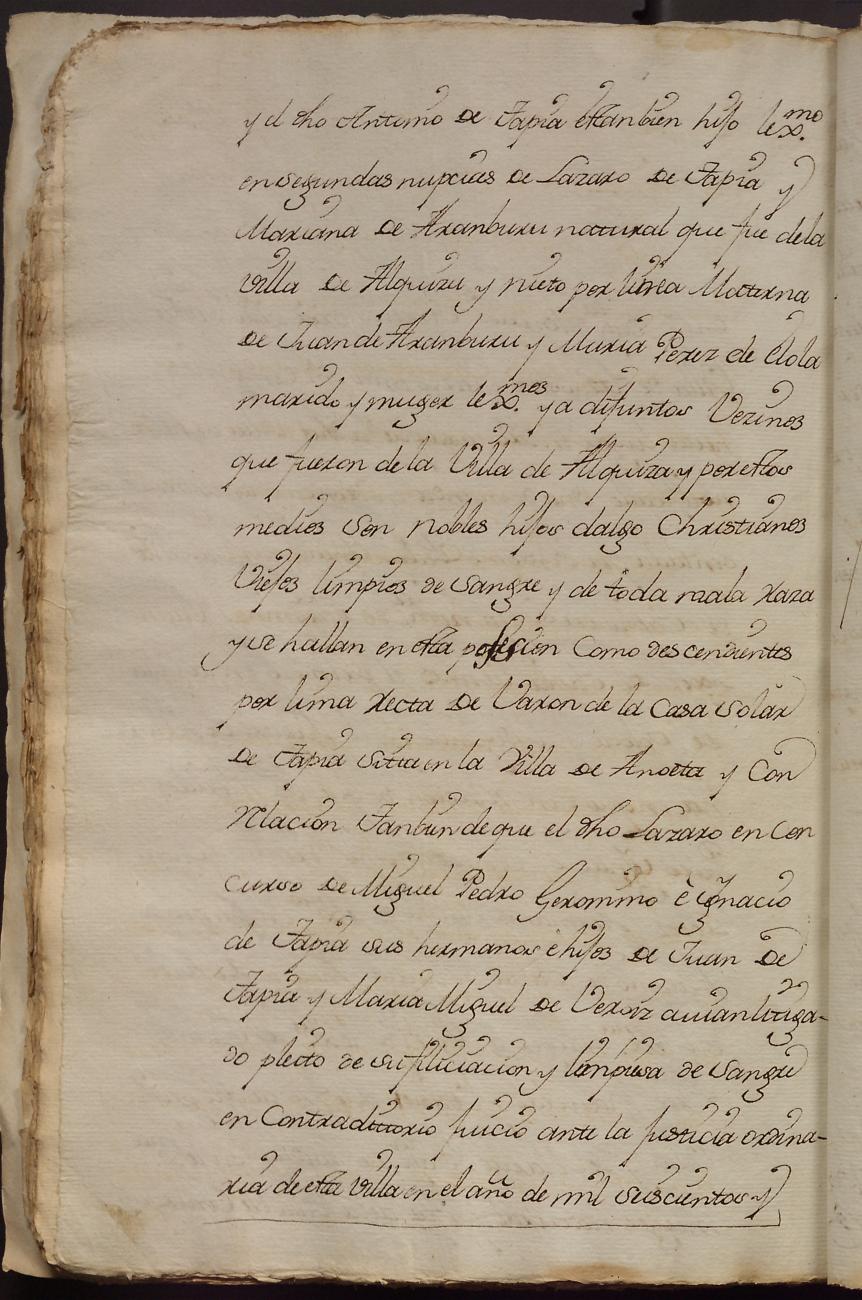 y el dho Antonio de Tapiaettanbien hijo lexmo.
en segundas nupcias de Lazaro de Tapia y
Mariana de Aranburu natural que fue dela
villa de Alquiza y nieto por linea Matterna
de Juan de Aranburu y Maria Perez de Elola
marido y muger lexmos. ya difuntos Vezinos
que fueron de la Villa de Alquiza y por esttos
medios son nobles hijos dalgo Christianos
Viejos limpios de sangre y de toda mala raza
y se hallan en estta possecion Como descendientes
por linia recta de Varon de la Casa solar
de Tapia sita en la Villa de Anoeta y Con
relacion Tanbien de que el dho Lazaro en Con
curso de Miguel Pedro Geronimo è Ygnacio
de Tapia sus hermanos è hijos de Juan de
Tapia y Maria Miguel de Veroiz auian litiga-
do pleito de su filiciacion y limpiesa de sangre
en Contradittorio juicio ante la justicia ordina-
ria de estta villa en el año de mil seiscientos y